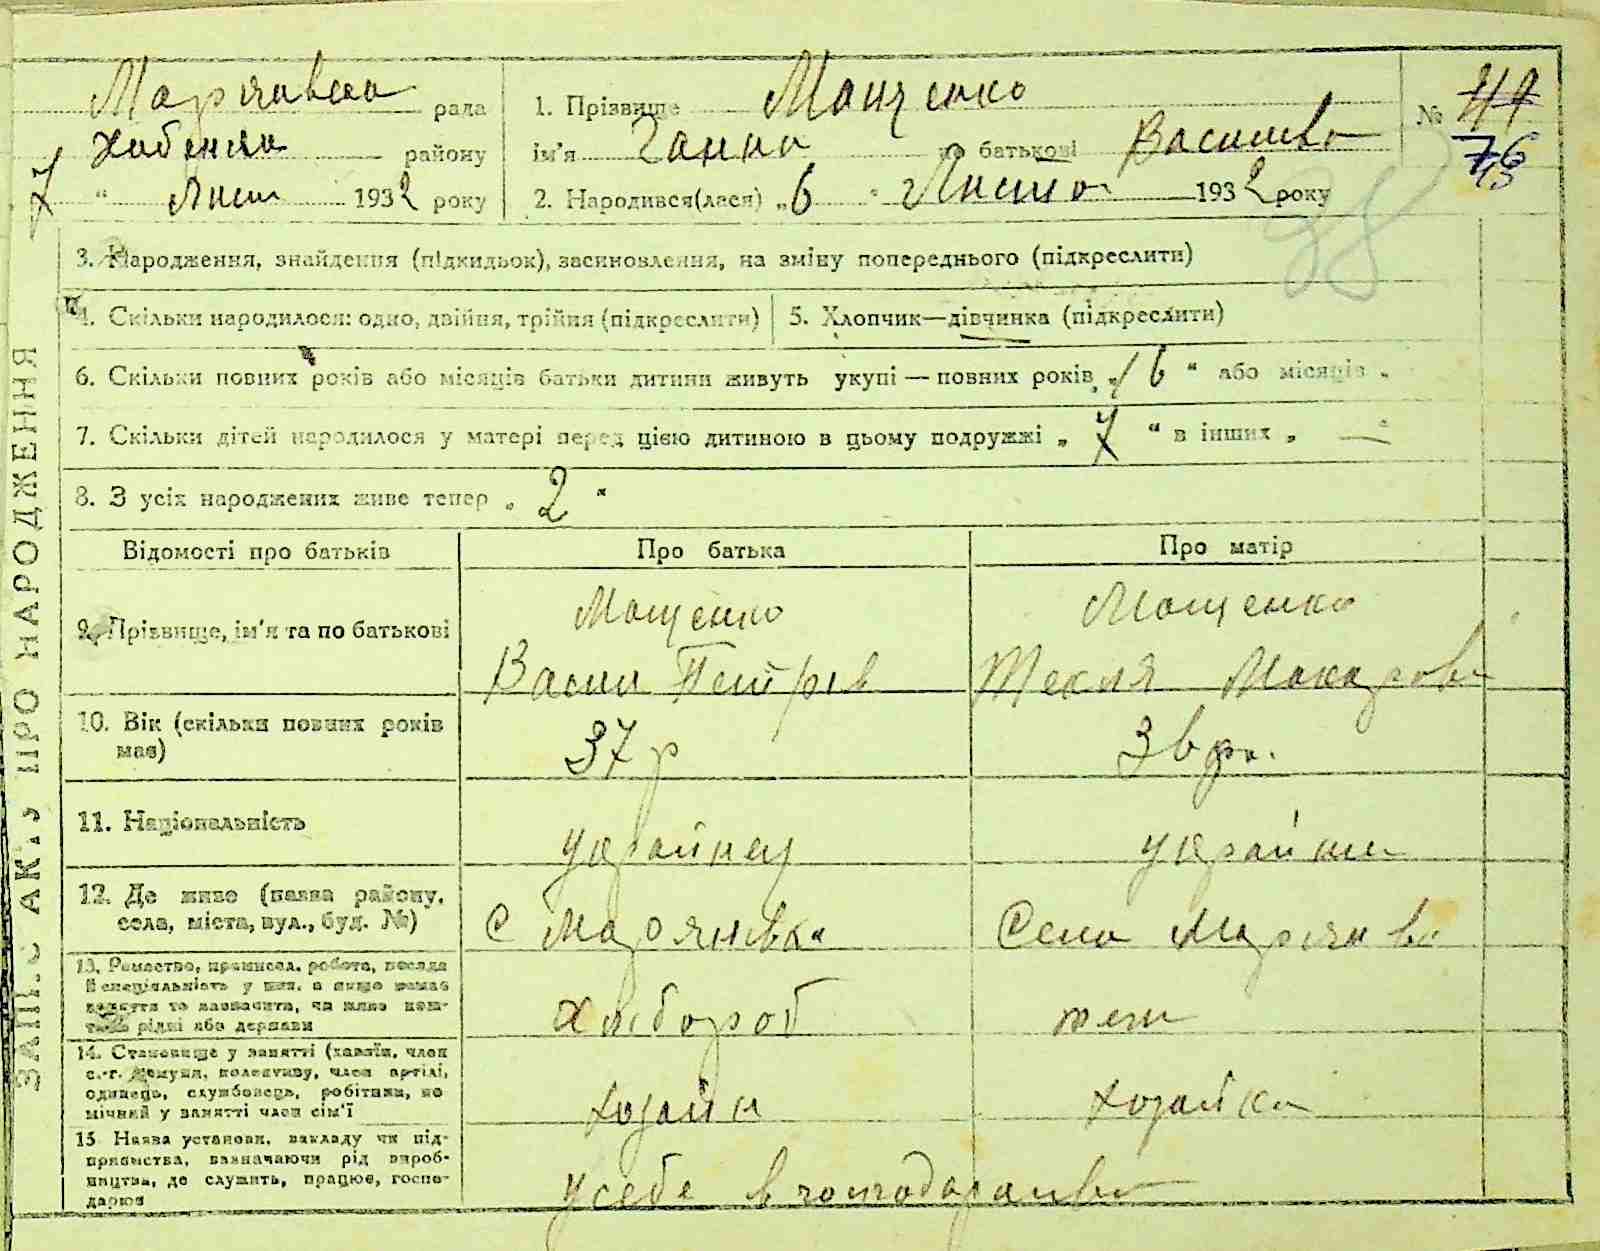 ЗАПИС АКТУ ПРО НАРОДЖЕННЯ
Марянвска рада
Хабенско району
7 " Лист 1932 року
1. Прізвище Мащенко
ім'я Ганна по батькові Василева
2. Народився(лася) „6 " Листо 1932 року
№ 76
38
3. Народження, знайдення (підкидьок), засиновлення, на зміну попереднього (підкреслити)
4. Скільки народилося: одно, двійня, трійня (підкреслити)
5. Хлопчик—дівчинка (підкреслити)
6. Скільки повних років або місяців батьки дитини живуть укупі — повних років „16 " або місяців „
7. Скільки дітей народилося у матері перед цією дитиною в цьому подружжі „ 7 " в інших „ — "
8. З усіх народжених живе тепер „ 2 "
Відомості про батьків Про батька Про матір
9. Прізвище, ім'я та по батькові
Мащенко
Васил Петрів
Мащенко
Текля Макарова
10. Вік (скільки повних років має)
37 р
36 р.
11. Національність
украйнец
украйни
12. Де живе (назва району, села, міста, вул., буд. №)
С Марянівка
Село Марянв
13. Ремество, промисел, робота, посада й спеціяльність у них, а якщо немає заняття то зазначити, чи живе коштом рідні або держави
хлібороб
теж
14. Становище у занятті (хазяїн, член с.-г. комуни, колективу, член артілі, одинець, службовець, робітник, помічний у занятті член сім'ї
хозяйн
хозайка
15. Назва установи, закладу чи підприємства, зазначаючи рід виробництва, де служить, працює, господарює
у себе в господарстві